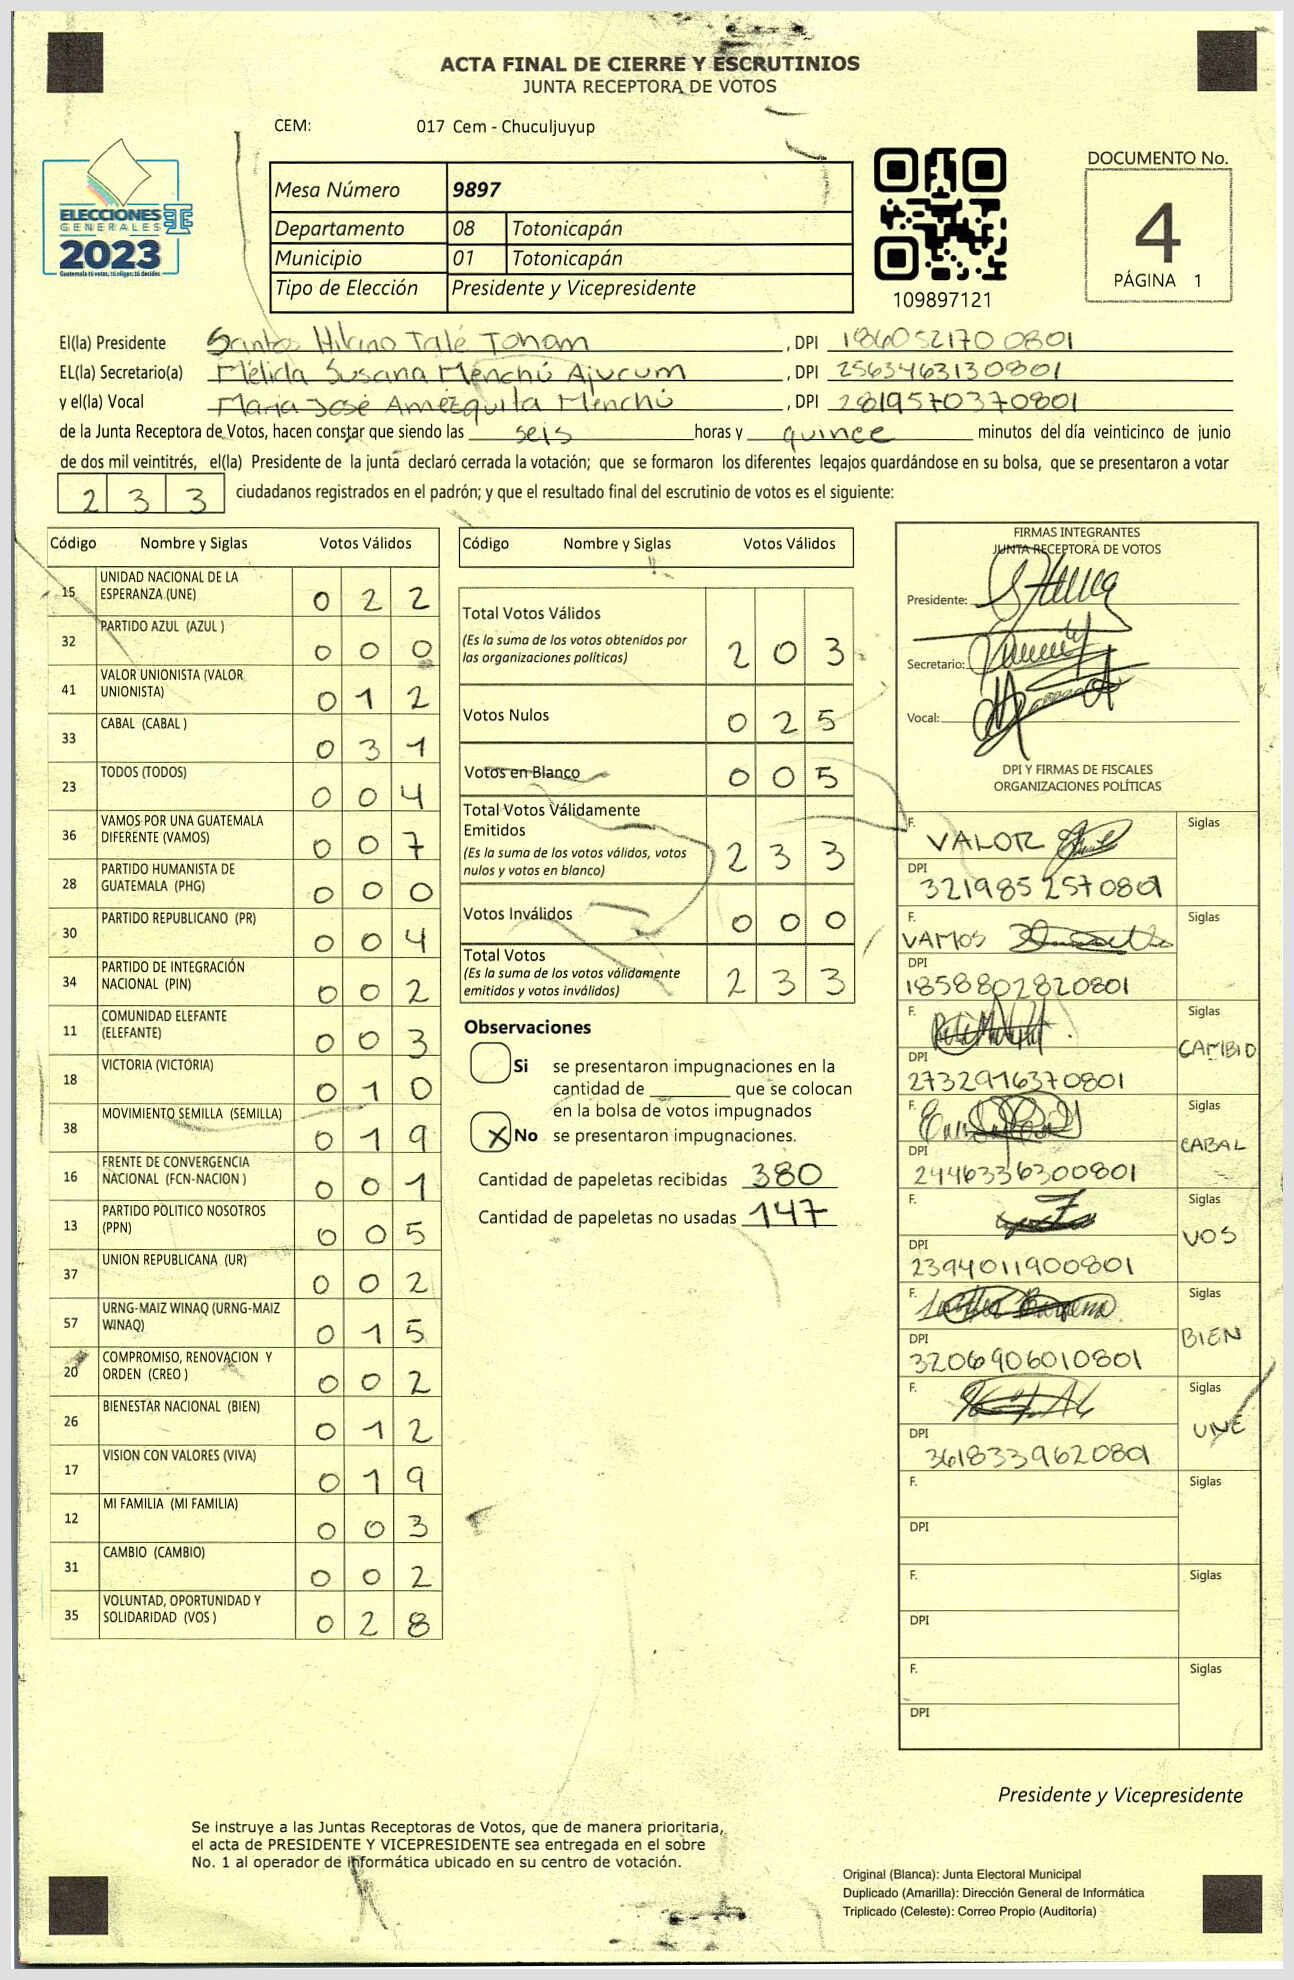 ACTA FINAL DE CIERRE Y ESCRUTINIOS
JUNTA RECEPTORA DE VOTOS
CEM: 017 Cem - Chuculjuyup
ELECCIONES
GENERALES
2023
Guatemala tú votas, tú eliges, tú decides
Mesa Número 9897
Departamento 08 Totonicapán
Municipio 01 Totonicapán
Tipo de Elección Presidente y Vicepresidente
109897121
DOCUMENTO No.
4
PÁGINA 1
El(la) Presidente Santos Talé , DPI 1860521700801
EL(la) Secretario(a) Mélida Susana Menchú Ajucum , DPI 2563463130801
y el(la) Vocal Maria José Amézquita Menchú , DPI 2819570370801
de la Junta Receptora de Votos, hacen constar que siendo las seis horas y quince minutos del día veinticinco de junio
de dos mil veintitrés, el(la) Presidente de la junta declaró cerrada la votación; que se formaron los diferentes legajos guardándose en su bolsa, que se presentaron a votar
233 ciudadanos registrados en el padrón; y que el resultado final del escrutinio de votos es el siguiente:
Código Nombre y Siglas Votos Válidos
15 UNIDAD NACIONAL DE LA ESPERANZA (UNE) 0 2 2
32 PARTIDO AZUL (AZUL ) 0 0 0
41 VALOR UNIONISTA (VALOR UNIONISTA) 0 1 2
33 CABAL (CABAL ) 0 3 1
23 TODOS (TODOS) 0 0 4
36 VAMOS POR UNA GUATEMALA DIFERENTE (VAMOS) 0 0 7
28 PARTIDO HUMANISTA DE GUATEMALA (PHG) 0 0 0
30 PARTIDO REPUBLICANO (PR) 0 0 4
34 PARTIDO DE INTEGRACIÓN NACIONAL (PIN) 0 0 2
11 COMUNIDAD ELEFANTE (ELEFANTE) 0 0 3
18 VICTORIA (VICTORIA) 0 1 0
38 MOVIMIENTO SEMILLA (SEMILLA) 0 1 9
16 FRENTE DE CONVERGENCIA NACIONAL (FCN-NACION ) 0 0 1
13 PARTIDO POLITICO NOSOTROS (PPN) 0 0 5
37 UNION REPUBLICANA (UR) 0 0 2
57 URNG-MAIZ WINAQ (URNG-MAIZ WINAQ) 0 1 5
20 COMPROMISO, RENOVACION Y ORDEN (CREO ) 0 0 2
26 BIENESTAR NACIONAL (BIEN) 0 1 2
17 VISION CON VALORES (VIVA) 0 1 9
12 MI FAMILIA (MI FAMILIA) 0 0 3
31 CAMBIO (CAMBIO) 0 0 2
35 VOLUNTAD, OPORTUNIDAD Y SOLIDARIDAD (VOS ) 0 2 8
Código Nombre y Siglas Votos Válidos
Total Votos Válidos 2 0 3
(Es la suma de los votos obtenidos por
las organizaciones políticas)
Votos Nulos 0 2 5
Votos en Blanco 0 0 5
Total Votos Válidamente
Emitidos 2 3 3
(Es la suma de los votos válidos, votos
nulos y votos en blanco)
Votos Inválidos 0 0 0
Total Votos 2 3 3
(Es la suma de los votos válidamente
emitidos y votos inválidos)
Observaciones
Si se presentaron impugnaciones en la
cantidad de ________ que se colocan
en la bolsa de votos impugnados
X No se presentaron impugnaciones.
Cantidad de papeletas recibidas 380
Cantidad de papeletas no usadas 147
FIRMAS INTEGRANTES
JUNTA RECEPTORA DE VOTOS
Presidente:
Secretario:
Vocal:
DPI Y FIRMAS DE FISCALES
ORGANIZACIONES POLÍTICAS
F. VALOR Siglas
DPI 3219852570801
F. VAMOS Siglas
DPI 1858802820801
F. Siglas CAMBIO
DPI 2732916370801
F. Siglas CABAL
DPI 2446336300801
F. Siglas VOS
DPI 2394011900801
F. Siglas BIEN
DPI 3206906010801
F. Siglas UNE
DPI
F. Siglas
DPI
F. Siglas
DPI
F. Siglas
DPI
Presidente y Vicepresidente
Se instruye a las Juntas Receptoras de Votos, que de manera prioritaria,
el acta de PRESIDENTE Y VICEPRESIDENTE sea entregada en el sobre
No. 1 al operador de informática ubicado en su centro de votación.
Original (Blanca): Junta Electoral Municipal
Duplicado (Amarilla): Dirección General de Informática
Triplicado (Celeste): Correo Propio (Auditoría)